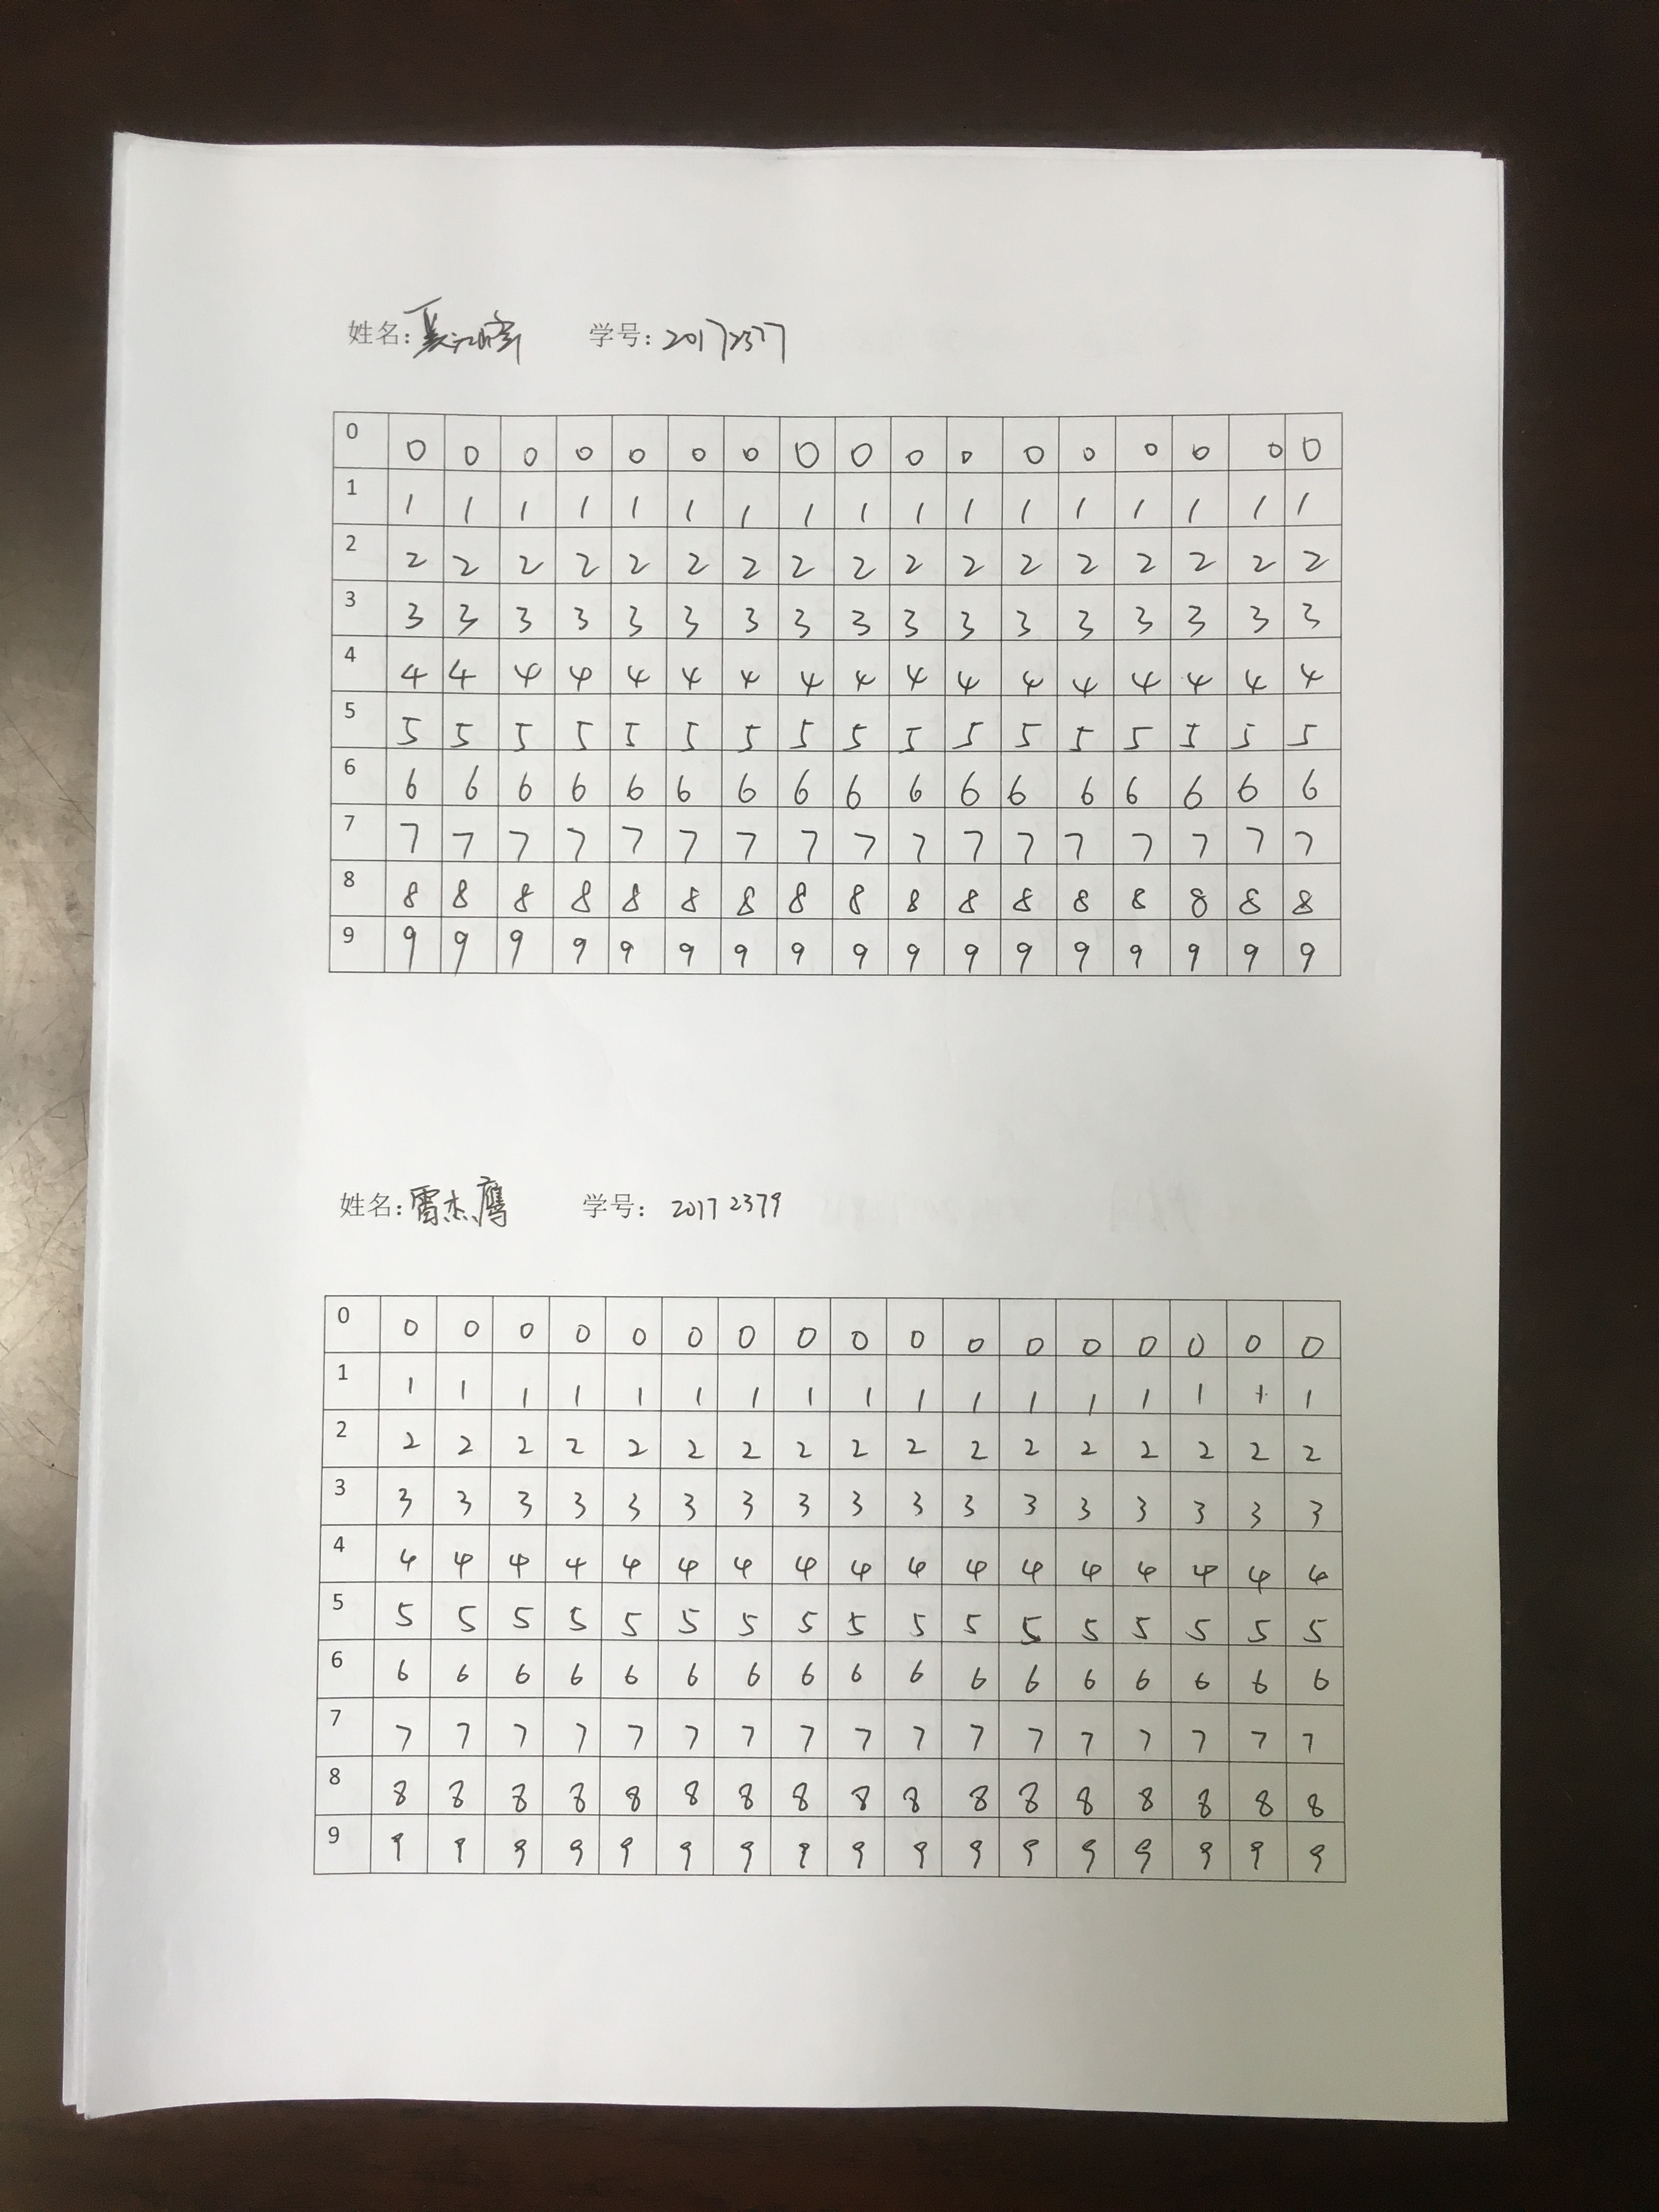 姓名： 学号：20172377
0 0 0 0 0 0 0 0 0 0 0 0 0 0 0 0 0 0
1 1 1 1 1 1 1 1 1 1 1 1 1 1 1 1 1 1
2 2 2 2 2 2 2 2 2 2 2 2 2 2 2 2 2 2
3 3 3 3 3 3 3 3 3 3 3 3 3 3 3 3 3 3
4 4 4 4 4 4 4 4 4 4 4 4 4 4 4 4 4 4
5 5 5 5 5 5 5 5 5 5 5 5 5 5 5 5 5 5
6 6 6 6 6 6 6 6 6 6 6 6 6 6 6 6 6 6
7 7 7 7 7 7 7 7 7 7 7 7 7 7 7 7 7 7
8 8 8 8 8 8 8 8 8 8 8 8 8 8 8 8 8 8
9 9 9 9 9 9 9 9 9 9 9 9 9 9 9 9 9 9
姓名：雷杰鹰 学号：20172379
0 0 0 0 0 0 0 0 0 0 0 0 0 0 0 0 0 0
1 1 1 1 1 1 1 1 1 1 1 1 1 1 1 1 1 1
2 2 2 2 2 2 2 2 2 2 2 2 2 2 2 2 2 2
3 3 3 3 3 3 3 3 3 3 3 3 3 3 3 3 3 3
4 4 4 4 4 4 4 4 4 4 4 4 4 4 4 4 4 4
5 5 5 5 5 5 5 5 5 5 5 5 5 5 5 5 5 5
6 6 6 6 6 6 6 6 6 6 6 6 6 6 6 6 6 6
7 7 7 7 7 7 7 7 7 7 7 7 7 7 7 7 7 7
8 8 8 8 8 8 8 8 8 8 8 8 8 8 8 8 8 8
9 9 9 9 9 9 9 9 9 9 9 9 9 9 9 9 9 9